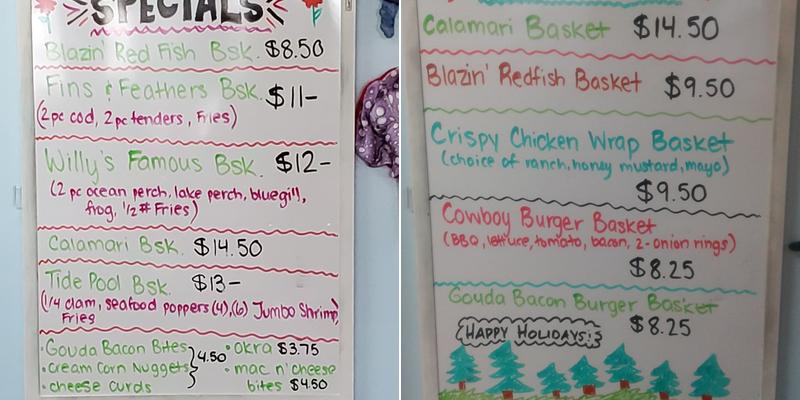 SPECIALS
Blazin' Red Fish Bsk. $8.50
Fins & Feathers Bsk. $11-
(2pc cod, 2pc tenders, Fries)
Willy's Famous Bsk. $12-
(2 pc ocean perch, lake perch, bluegill,
frog, 1/2# Fries)
Calamari Bsk. $14.50
Tide Pool Bsk. $13-
(1/4 clam, seafood poppers (4), (6) Jumbo Shrimp,
Fries
•Gouda Bacon Bites
•cream corn Nuggets
•cheese curds
} 4.50
•okra $3.75
•mac n' cheese
bites $4.50
Calamari Basket $14.50
Blazin' Redfish Basket $9.50
Crispy Chicken Wrap Basket
(choice of ranch, honey mustard, mayo)
$9.50
Cowboy Burger Basket
(BBQ, lettuce, tomato, bacon, 2-onion rings)
$8.25
Gouda Bacon Burger Basket
$8.25
HAPPY HOLIDAYS!